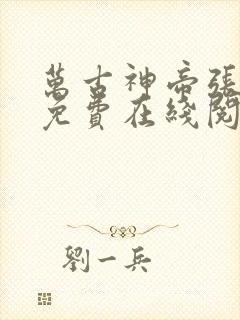 萬古神帝張
免費在綫閱
劉一兵